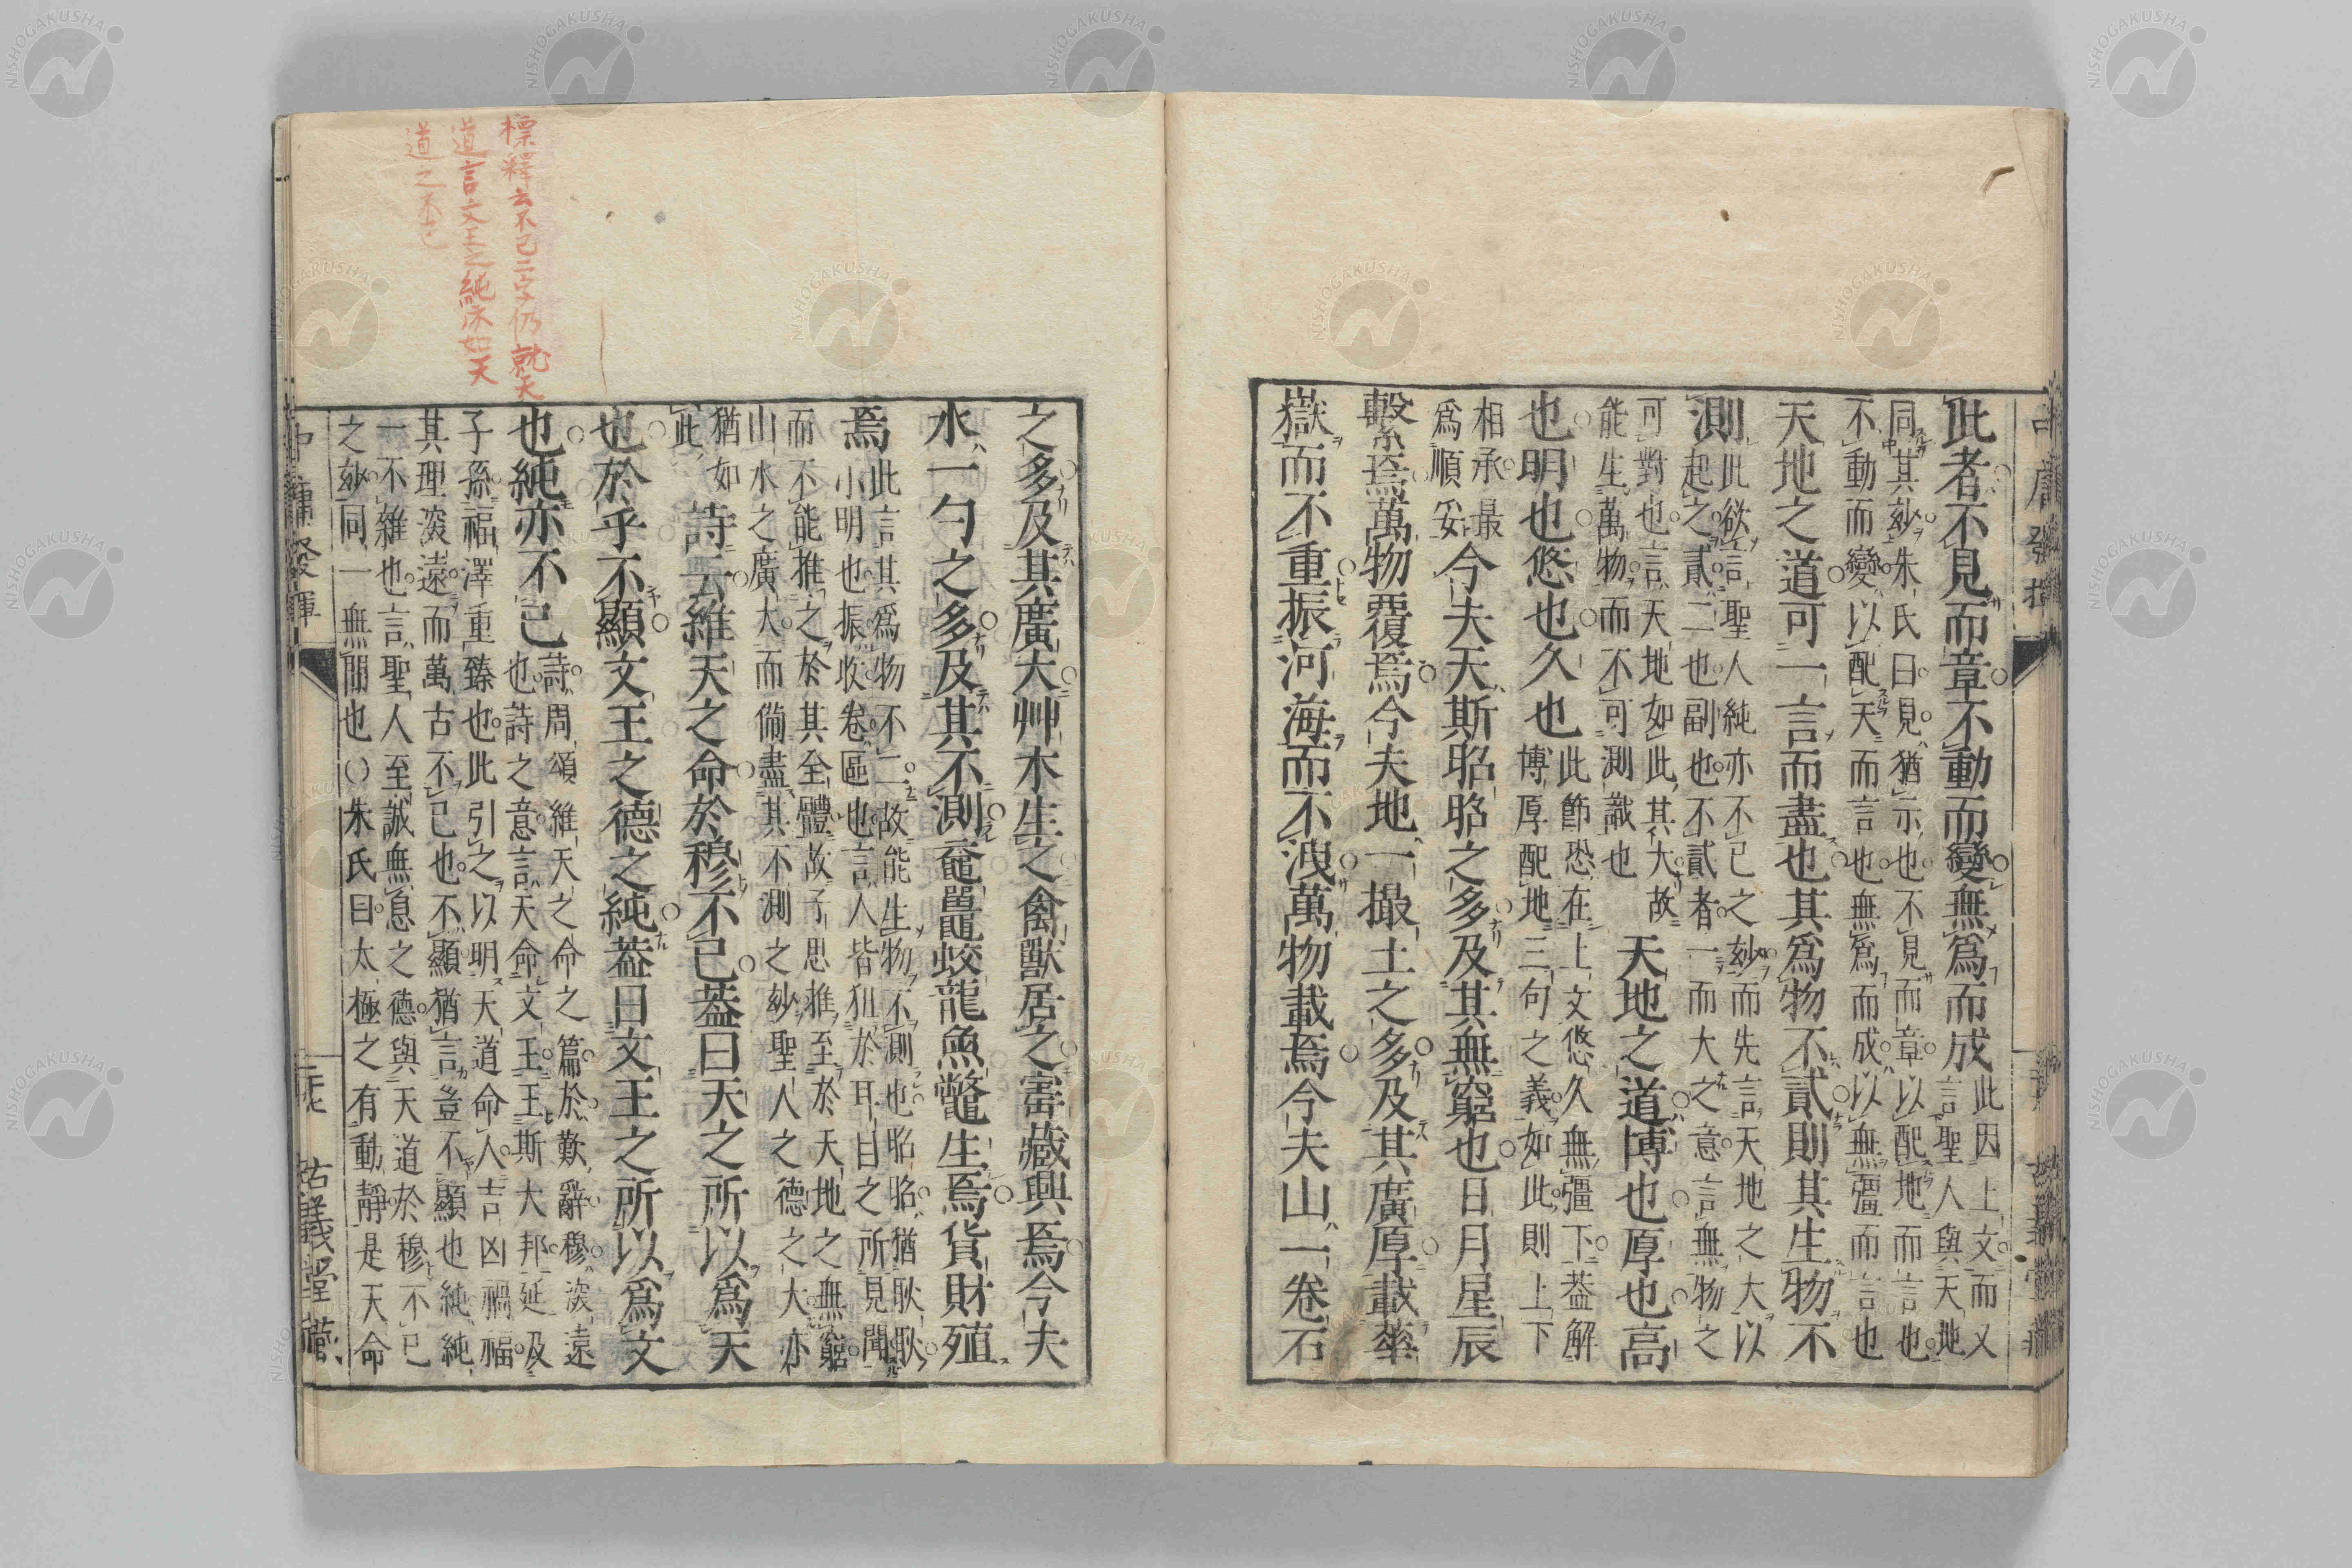 此者不見而章不動而變無爲而成
此因上文而又
言聖人與天地
同其玅朱氏曰見猶示也不見而章以配地而言也
不動而變以配天而言也無爲而成以無彊而言也
天地之道可一言而盡也其爲物不貳則其生物不
測
此欲言聖人純亦不已之玅而先言天地之大以
起之貳二也副也不貳者一而大之意言無物之
可對也言天地如此其大故
能生萬物而不可測識也
天地之道博也厚也高
也明也悠也久也
此節恐在上文悠久無彊下葢解
博厚配地三句之義如此則上下
相承最
爲順妥
今夫天斯昭昭之多及其無窮也日月星辰
繫焉萬物覆焉今夫地一撮土之多及其廣厚載華
嶽而不重振河海而不洩萬物載焉今夫山一卷石
之多及其廣大艸木生之禽獸居之寶藏興焉今夫
水一勺之多及其不測黿鼉蛟龍魚鼈生焉貨財殖
焉
此言其爲物不二故能生物不測也昭昭猶耿耿
小明也振收卷區也言人皆狃於耳目之所見聞
而不能推之於其全體故子思推至於天地之無窮
山水之廣大而備盡其不測之玅聖人之德之大亦
猶如
此
詩云維天之命於穆不已葢曰天之所以爲天
也於乎不顯文王之德之純葢曰文王之所以爲文
也純亦不已
詩周頌維天之命之篇於歎辭穆深遠
也詩之意言天命文王王斯大邦延及
子孫福澤重臻也此引之以明天道命人吉凶禍福
其理深遠而萬古不已也不顯猶言豈不顯也純純
一不雜也言聖人至誠無息之德與天道於穆不已
之玅同一無間也〇朱氏曰太極之有動靜是天命
中庸發揮
古義堂藏
標釋云不已二字仍就天
道言文王之純亦如天
道之不已